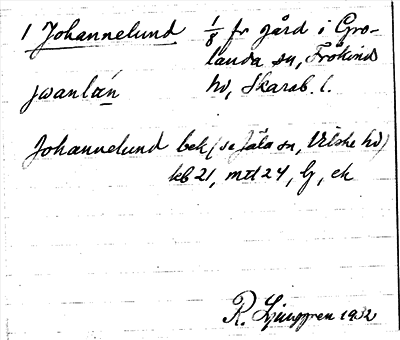 1 Johannelund 1/8 fr gård i Gro-
landa sn, Frökind
jwanlœ́n hd, Skarab. l.
Johannelund bek (se Jäla sn, Vilske hd)
kb 21, mtl 24, lj, ek
R. Ljunggren 1932